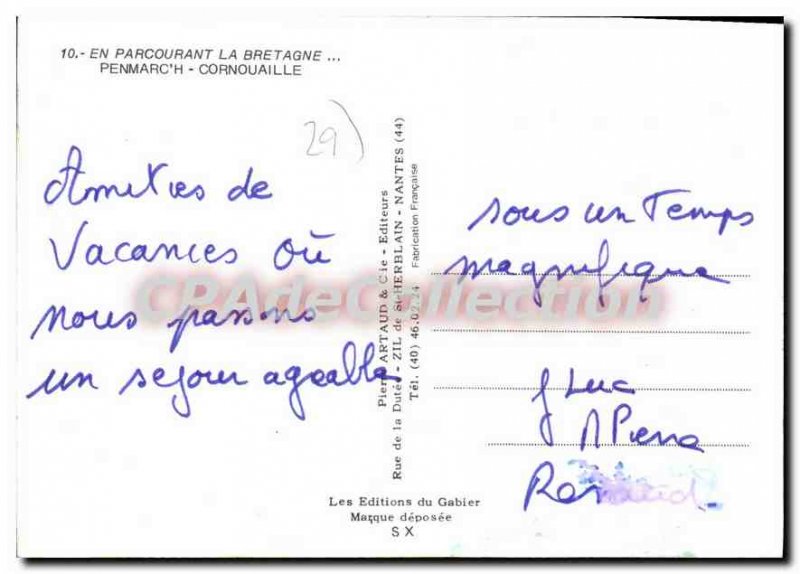 10.- EN PARCOURANT LA BRETAGNE ...
PENMARC'H - CORNOUAILLE
29)
Amitiés de
Vacances où
nous passons
un sejour agreable
Pierre ARTAUD & Cie - Editeurs
Rue de la Dutée - ZIL de St-HERBLAIN - NANTES (44)
Tél. (40) 46.02.24 Fabrication Française
sous un Temps
magnifique
J Luc
Renaud
Les Editions du Gabier
Marque déposée
S X
CPAdeCollection